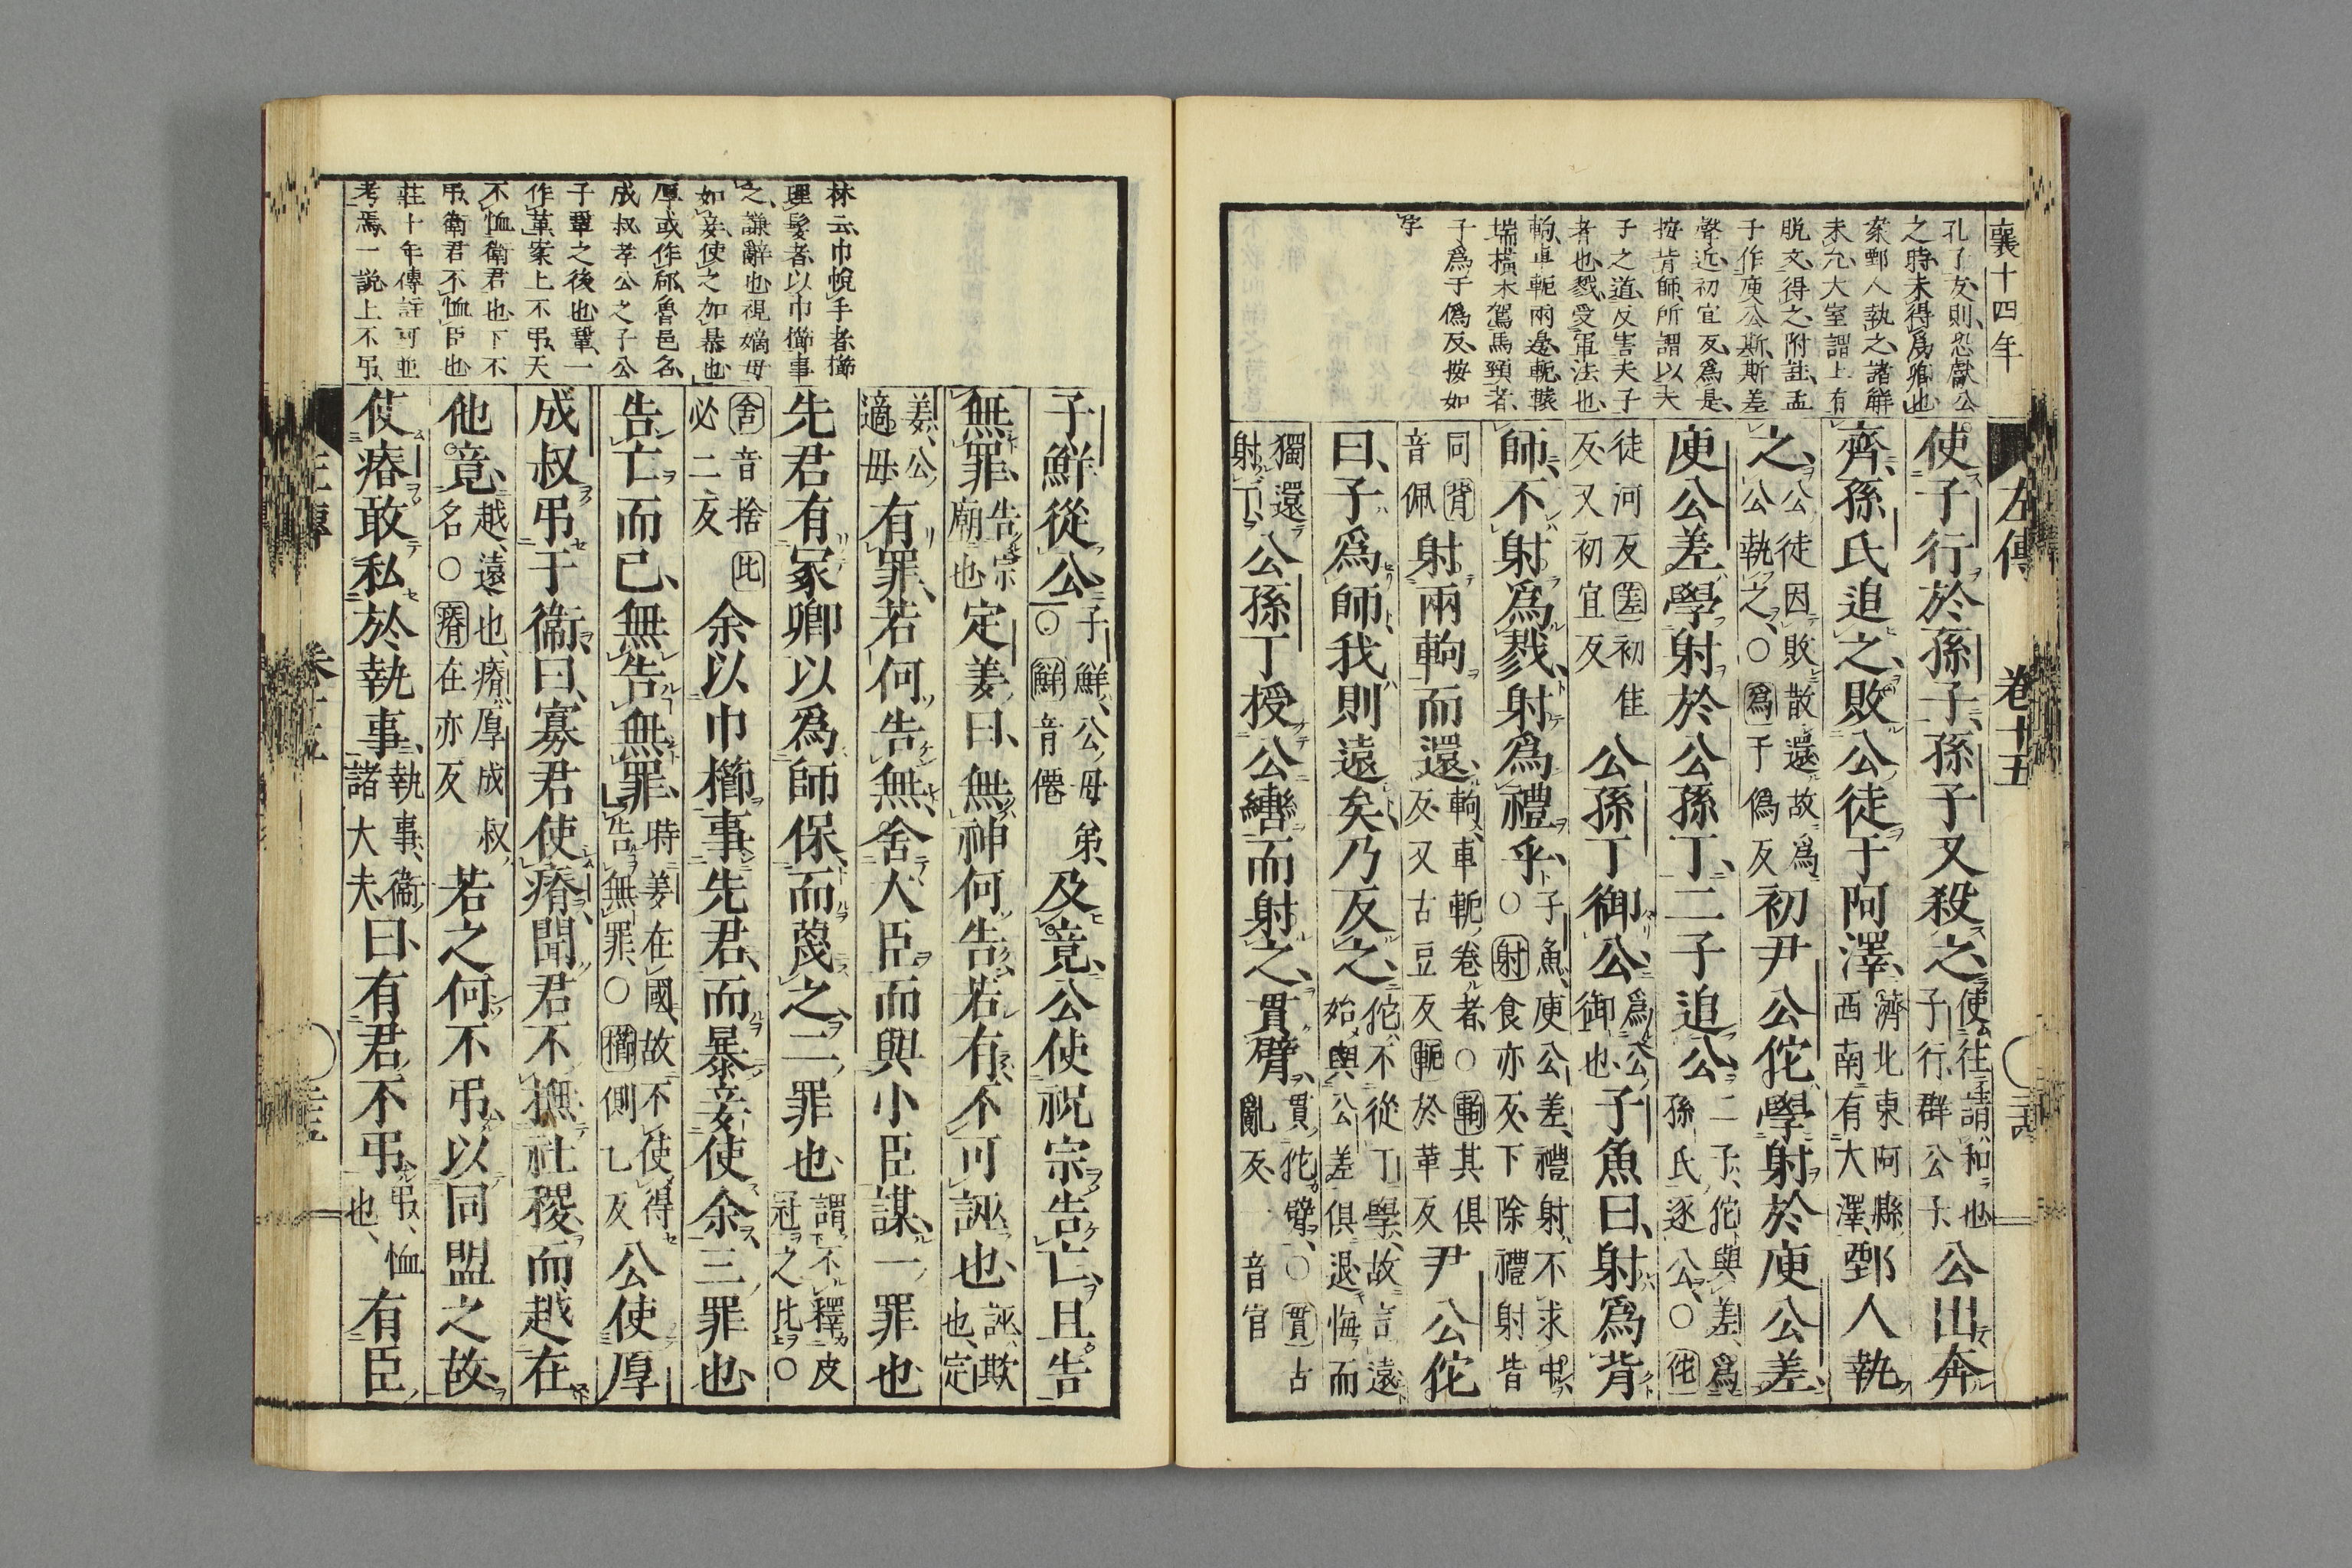 襄十四年
孔子友則恐獻公
之時未得爲卿也
案鄄人執之諸解
未允大室謂上有
脱文得之附註孟
子作庾公斯斯差
聲近初宜反爲是
按背師所謂以夫
子之道反害夫子
者也戮受軍法也
軥車軛兩邊軛轅
端橫木駕馬頸者
子爲于僞反按如
字
左傳 卷十五
使子行於孫子孫子又殺之使往請和也子行群公子公出奔
齊孫氏追之敗公徒于阿澤濟北東阿縣西南有大澤鄄人執
之公徒因敗散還故爲公執之○爲于僞反初尹公佗學射於庾公差
庾公差學射於公孫丁二子追公二子佗與差爲孫氏逐公○佗
徒河反差初佳反又初宜反公孫丁御公爲公御也子魚曰射爲背
師不射爲戮射爲禮乎子魚庾公差禮射不求中○射食亦反下除禮射皆
同背音佩射兩軥而還軥車軛卷者○軥其俱反又古豆反軛於革反尹公佗
曰子爲師我則遠矣乃反之佗不從丁學故言遠始與公差俱退悔而
獨還射丁公孫丁授公轡而射之貫臂貫佗臂○貫古亂反一音官
林云巾帨手者櫛
理髮者以巾櫛事
之謙辭也視嫡母
如妾使之加暴也
厚或作郈魯邑名
成叔孝公之子公
子鞏之後也鞏一
作革案上不弔天
不恤衛君也下不
弔衛君不恤臣也
莊十年傳註可並
考焉一說上不弔
子鮮從公子鮮公母弟○鮮音僊及竟公使祝宗告亡且告
無罪告宗廟也定姜曰無神何告若有不可誣也誣欺也定
姜公適母有罪若何告無舍大臣而與小臣謀一罪也
先君有冢卿以爲師保而蔑之二罪也謂不釋皮冠之比○
舍音捨比必二反余以巾櫛事先君而暴妾使余三罪也
告亡而已無告無罪時姜在國故不使得告無罪○櫛側乙反公使厚
成叔弔于衛曰寡君使瘠聞君不撫社稷而越在
他竟越遠也瘠厚成叔名○瘠在亦反若之何不弔以同盟之故
使瘠敢私於執事執事衛諸大夫曰有君不弔弔恤也有臣